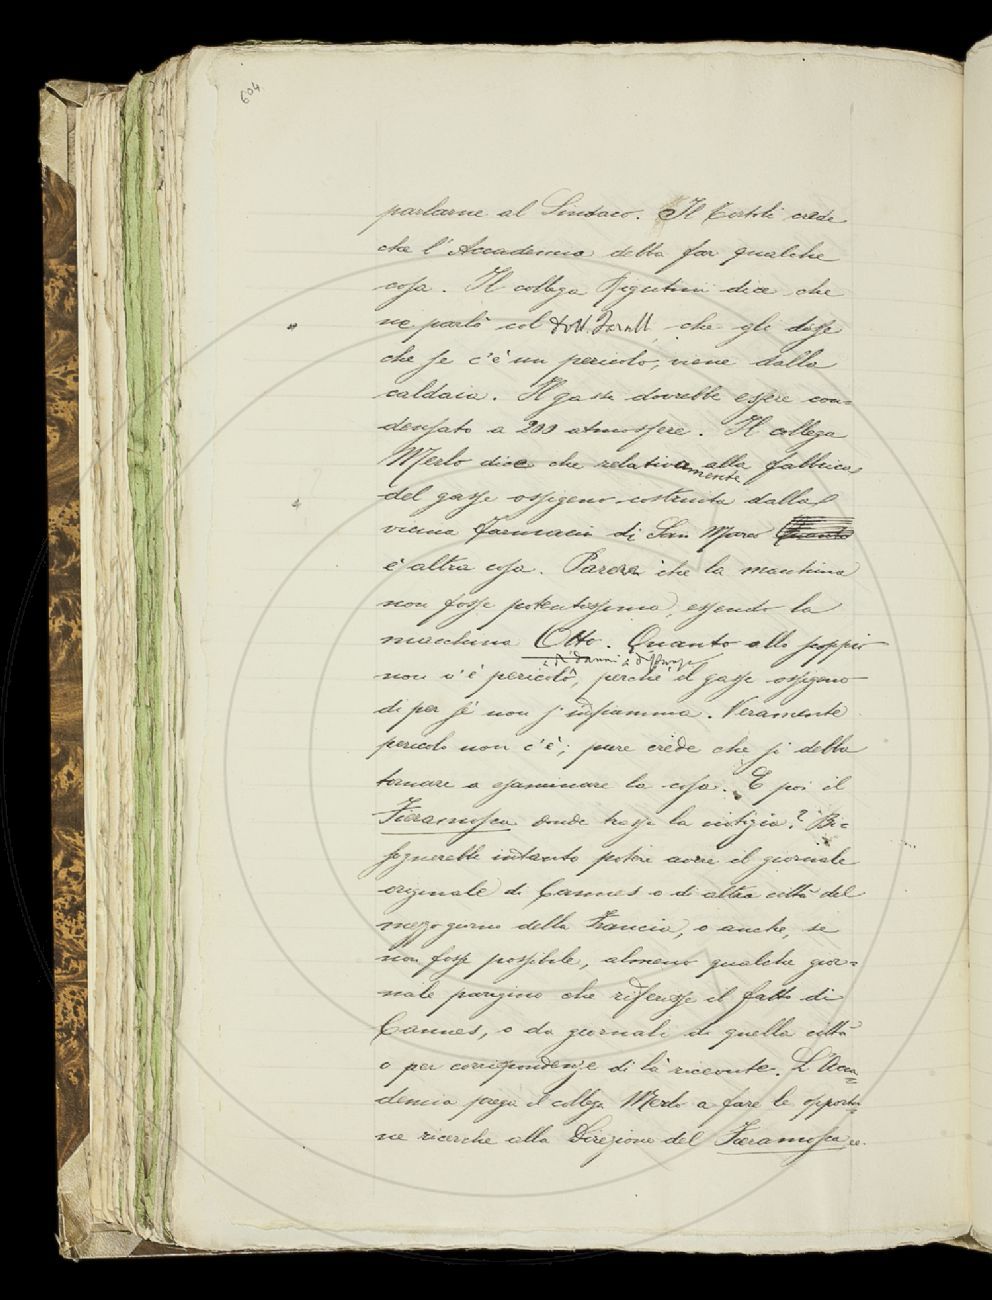 604
parlarne al Sindaco. Il Tortoli crede
che l'Accademia debba far qualche
cosa. Il collega Rigutini dice che
ne parlò col dott. che gli disse
che se c'è un pericolo, viene dalla
caldaia. Il gasse dovrebbe essere con=
densato a 200 atmosfere. Il collega
Merlo dice che relativamente alla fabbrica
del gasse ossigeno costruita dalla
vicina Farmacia di San Marco
è altra cosa. che la macchina
non fosse potentissima, essendo la
macchina Otto. Quanto allo scoppio
non v'è pericolo, perchè il gasse ossigeno
di per sè non s'infiamma. Veramente
pericolo non c'è; pure crede che si debba
tornare a esaminare la cosa. E poi il
Fieramosca donde trasse la notizia? Bi=
sognerebbe intanto potere avere il giornale
originale di Cannes o di altra città del
mezzogiorno della Francia, o anche, se
non fosse possibile, almeno qualche gior=
nale parigino che riferisse il fatto di
Cannes, o da giornali di quella città
o per corrispondenze di là ricevute. L'Acca=
demia prega il collega Merlo a fare le opportu=
ne ricerche alla Direzione del Fieramosca